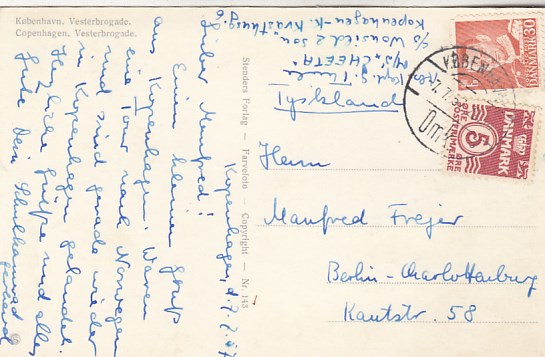 København. Vesterbrogade.
Copenhagen. Vesterbrogade.
Kopenhagen, d. 7.7.57
Lieber Manfred!
Einen kleinen Gruß
aus Kopenhagen. Waren
eine Tour nach Norwegen
und sind gerade wieder
in Kopenhagen gelandet.
Herzliche Grüße und alles
Gute Dein Schulkamerad
Stenders Forlag - Farvefoto - Copyright - Nr. 143
M/S "CHEETA"
Kopenhagen-K.
Tyskland
Herrn
Manfred Frejer
Berlin-Charlottenburg
Kantstr. 58
KØBENHAVN
Om
DANMARK 30
DANMARK
5